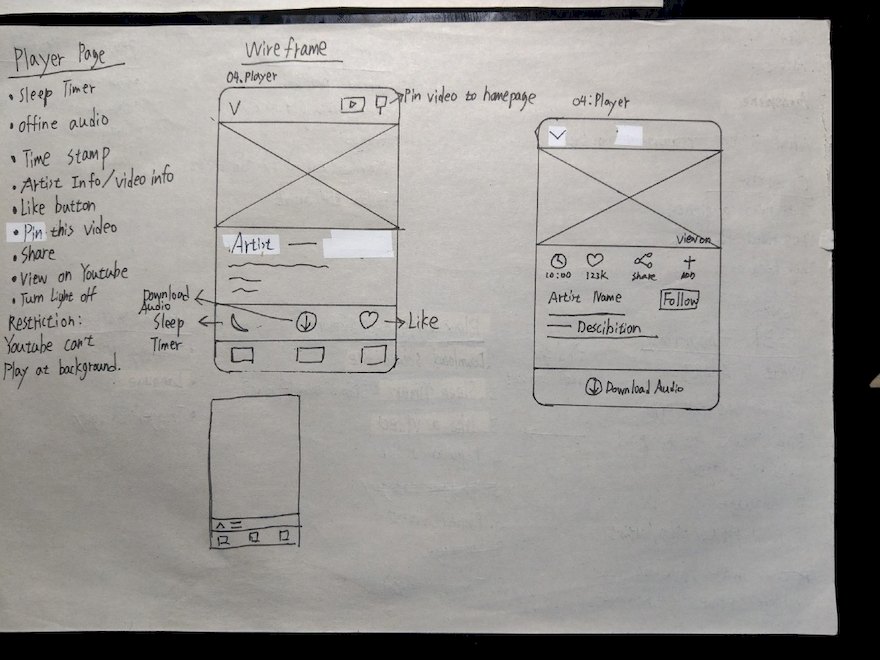 Player Page
• Sleep Timer
• offine audio
• Time stamp
• Artist Info/video info
• Like button
• Pin this video
• Share
• View on Youtube
• Turn Light off
Restriction:
Youtube can't
Play at background.
Wireframe
04.Player
Pin video to homepage
Artist
Download
Audio
Sleep
Timer
Like
04:Player
View on
10:00
123K
share
ADD
Artist Name
Follow
Descibition
Download Audio